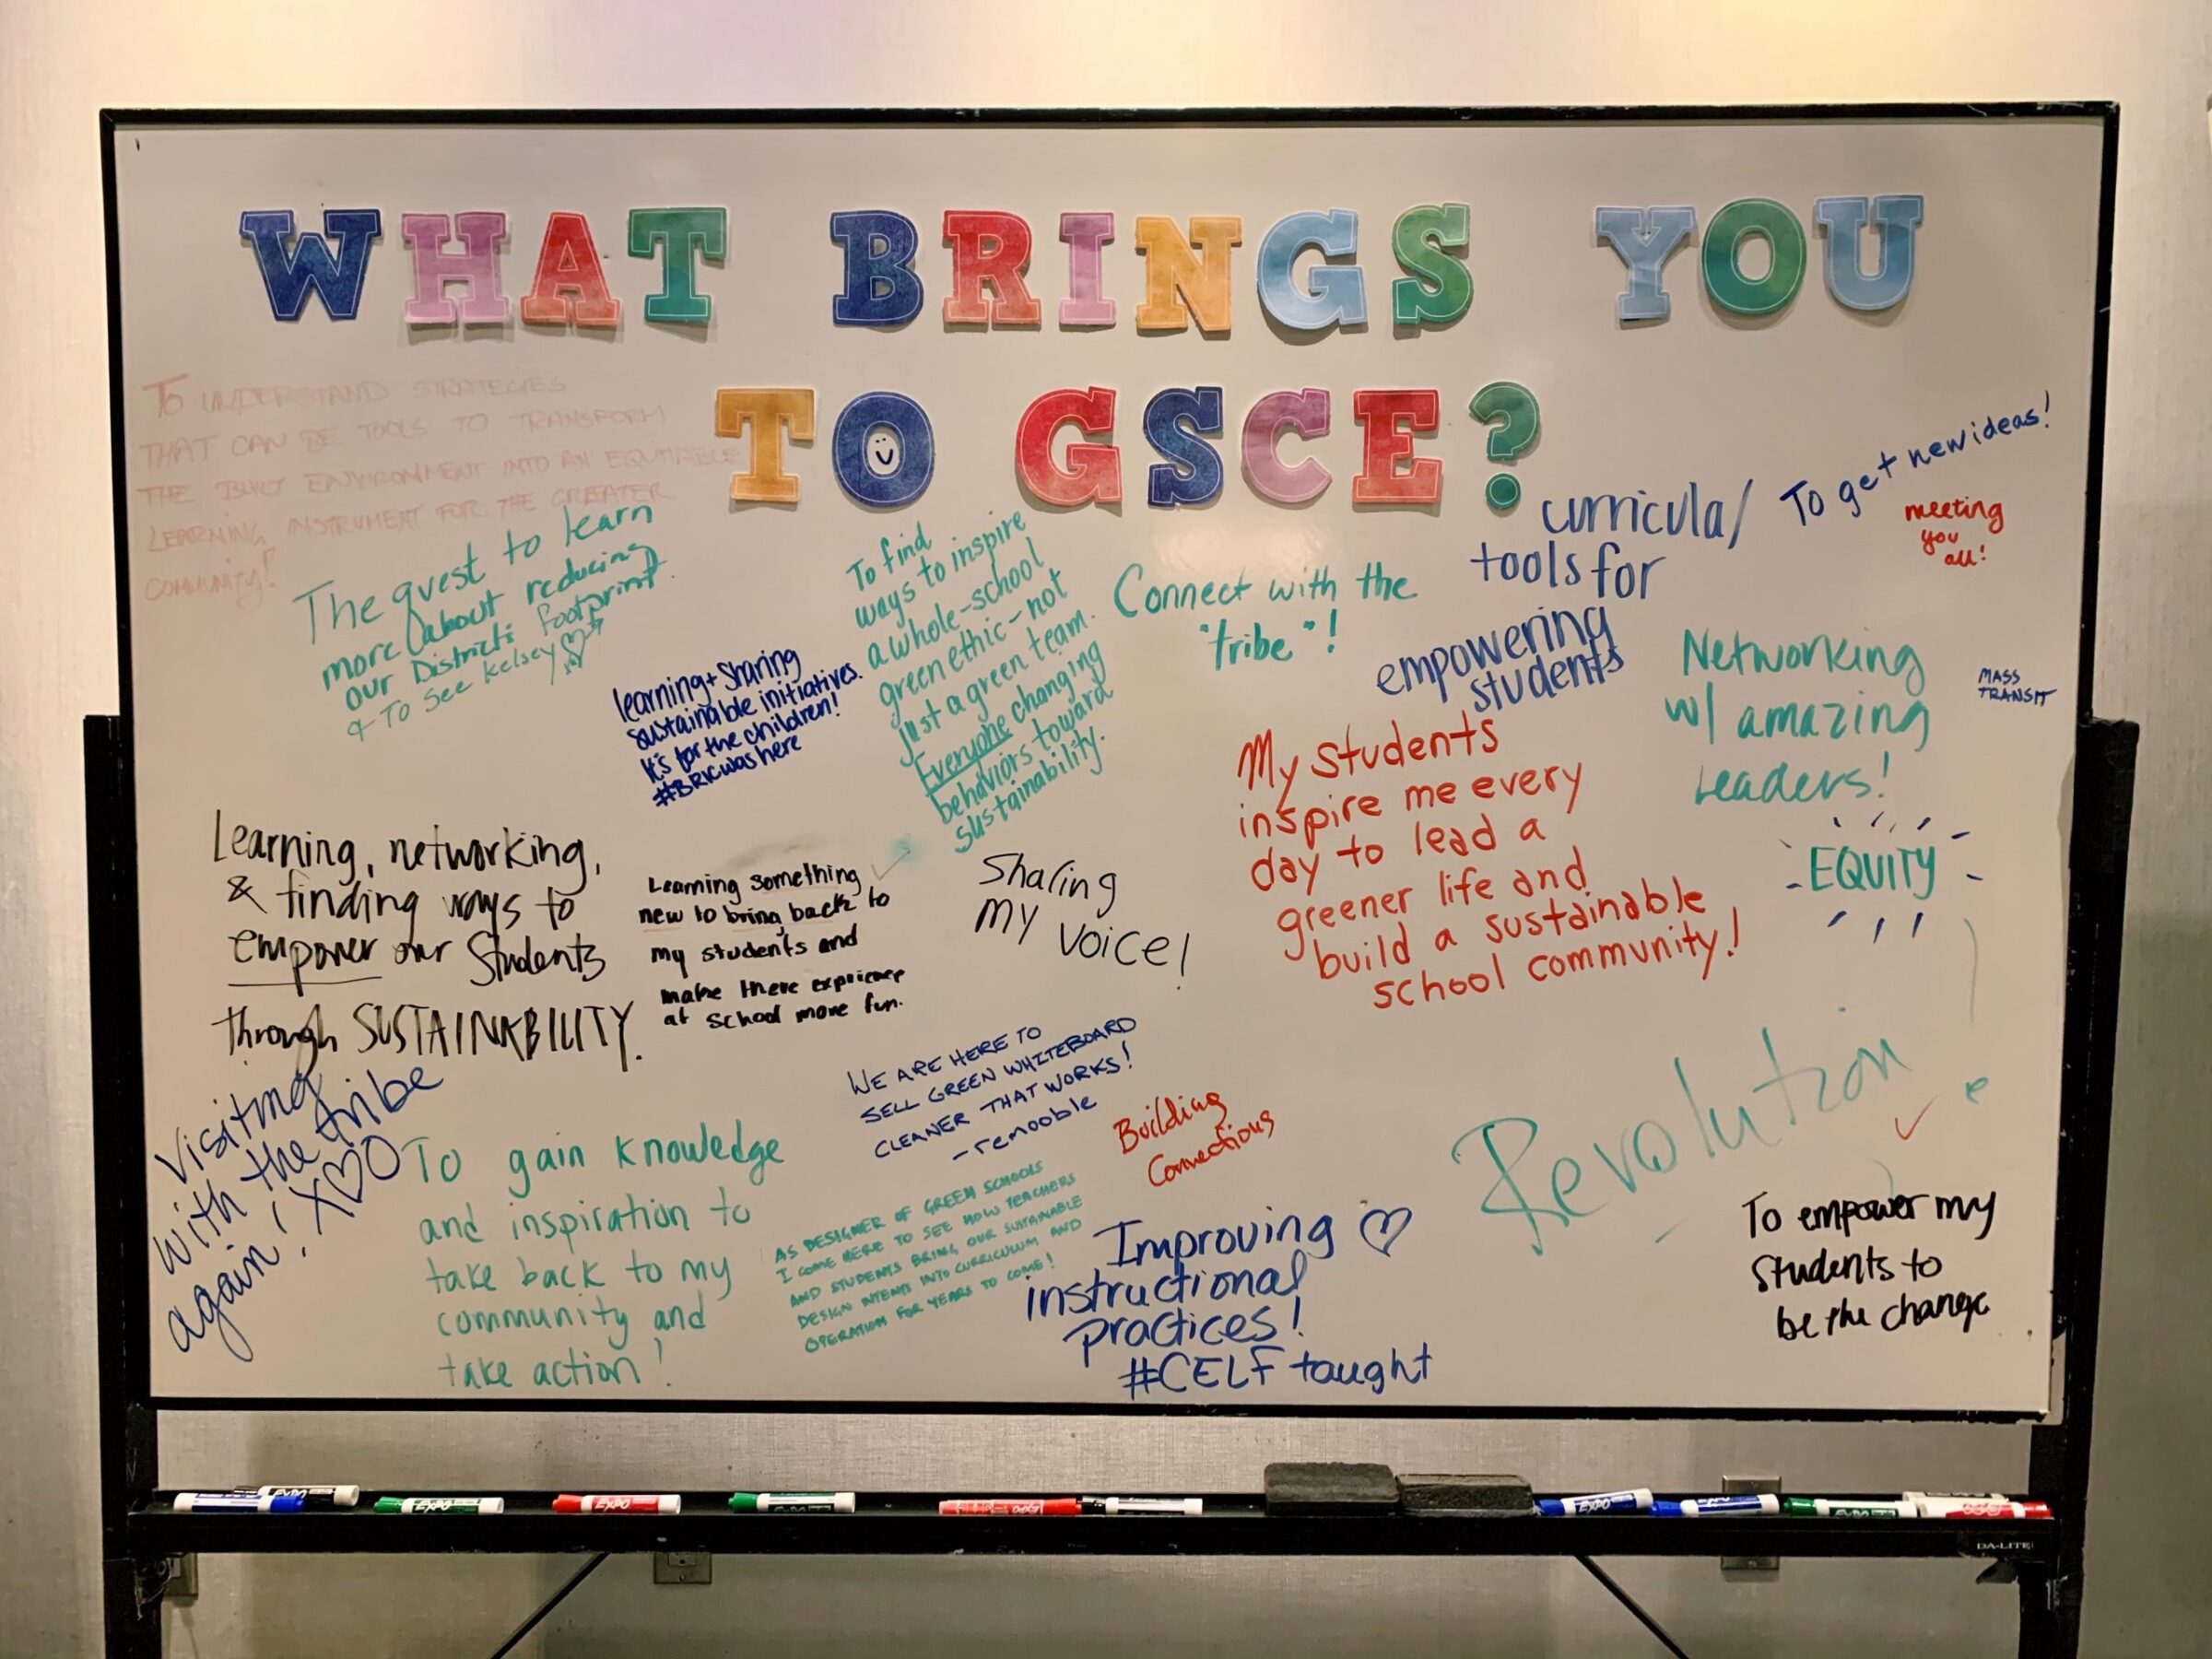 WHAT BRINGS YOU
TO GSCE?
TO UNDERSTAND STRATEGIES
THAT CAN BE TOOLS TO TRANSFORM
THE BUILT ENVIRONMENT INTO AN EQUITABLE
LEARNING INSTRUMENT FOR THE GREATER
COMMUNITY!
The quest to learn
more about reducing
our District's footprint
& To See Kelsey
learning + Sharing
sustainable initiatives.
It's for the children!
#BRICwashere
To find
ways to inspire
a whole-school
green ethic-not
just a green team.
Everyone changing
behaviors toward
sustainability.
Connect with the
"tribe"!
curricula/
tools for
empowering
students
To get new ideas!
meeting
you
all!
Networking
w/ amazing
Leaders!
MASS
TRANSIT
My students
inspire me every
day to lead a
greener life and
build a sustainable
school community!
EQUITY
Learning, networking,
& finding ways to
empower our Students
through SUSTAINABILITY.
Learning something
new to bring back to
my students and
make there experience
at school more fun.
Sharing
my voice!
WE ARE HERE TO
SELL GREEN WHITEBOARD
CLEANER THAT WORKS!
- remooble
Building
Connections
Revolution
Visiting
with the tribe
again! XO
To gain knowledge
and inspiration to
take back to my
community and
take action!
AS DESIGNER OF GREEN SCHOOLS
I COME HERE TO SEE HOW TEACHERS
AND STUDENTS BRING OUR SUSTAINABLE
DESIGN INTENTS INTO CURRICULUM AND
OPERATION FOR YEARS TO COME!
Improving
instructional
practices!
#CELF taught
To empower my
students to
be the change
EXPO
EXPO
EXPO
EXPO
EXPO
EXPO
EXPO
DA-LITE